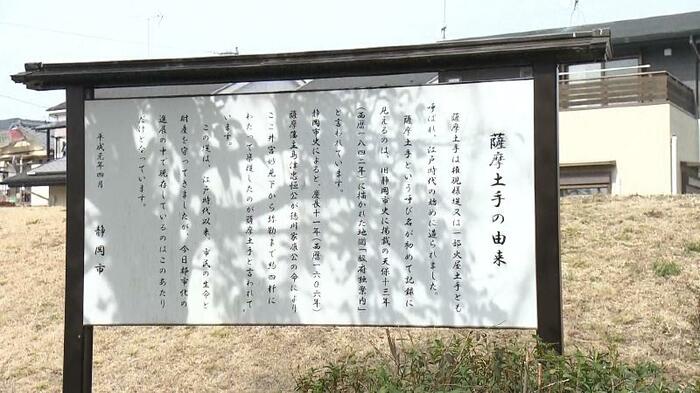 薩摩土手の由来
薩摩土手は権現様堤又は一部火屋土手とも
呼ばれ、江戸時代の始めに造られました。
薩摩土手という呼び名が初めて記録に
見えるのは、旧静岡市史に掲載の天保十三年
(西暦一八四二年)に描かれた地図「駿府独案内」
と言われています。
静岡市史によると、慶長十一年(西暦一六〇六年)
薩摩藩主島津忠恒公が徳川家康公の命により
ここ井宮妙見下から弥勒まで約四粁に
わたって築堤したのが薩摩土手と言われて
います。
この堤は、江戸時代以来、市民の生命と
財産を守ってきましたが、今日都市化の
進展の中で現存しているのはこのあたり
だけとなっています。
平成元年四月
静岡市